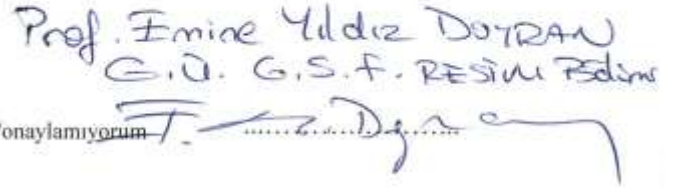 Prof. Emine Yıldız DOYRAN
G.Ü. G.S.F. RESİM Bölümü
onaylamıyorum ........................